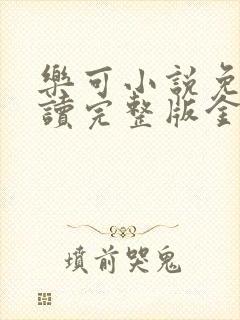 樂可小說免
讀完整版全
墳前哭鬼